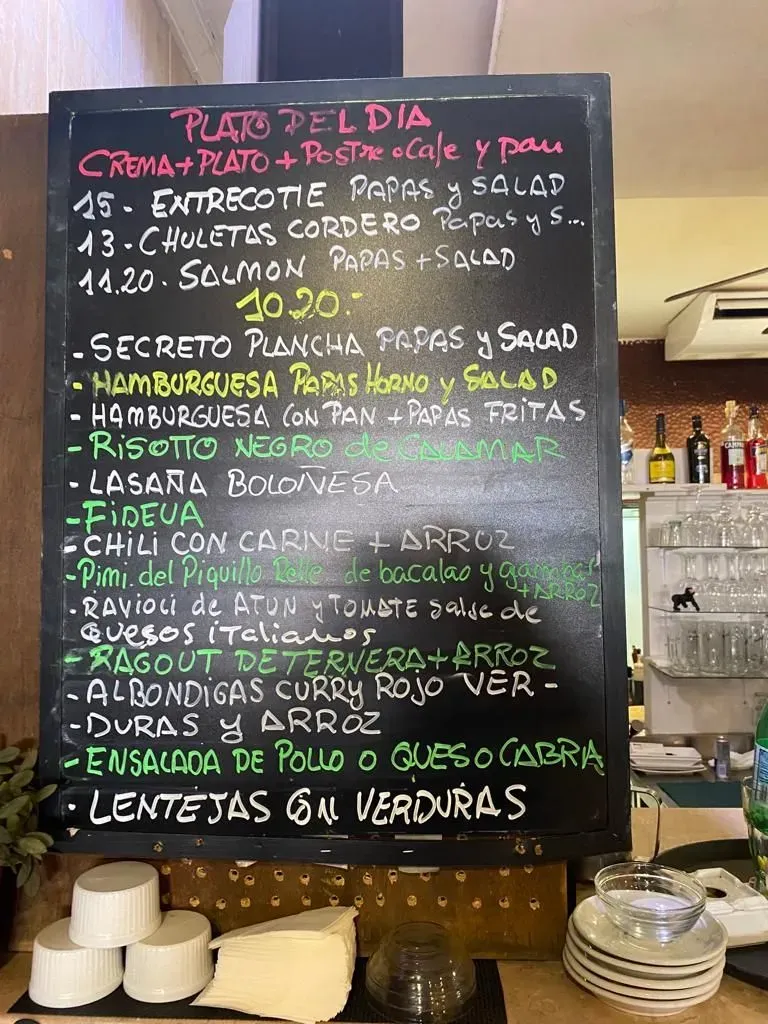 PLATO DEL DIA
CREMA + PLATO + Postre o Cafe y pan
15. ENTRECOTTE PAPAS y SALAD
13. CHULETAS CORDERO Papas y S...
11.20. SALMON PAPAS + SALAD
10.20.-
- SECRETO PLANCHA PAPAS y SALAD
- HAMBURGUESA PAPAS HORNO y SALAD
- HAMBURGUESA CON PAN + PAPAS FRITAS
- RISOTTO NEGRO de CALAMAR
- LASAÑA BOLOÑESA
- FIDEUA
- CHILI CON CARNE + ARROZ
- Pimi. del Piquillo Relle de bacalao y gambas
+ ARROZ
- RAVIOLI de ATUN y TOMATE salse de
QUESOS italianos
- RAGOUT DE TERNERA + ARROZ
- ALBONDIGAS CURRY ROJO VER -
- DURAS y ARROZ
- ENSALADA DE POLLO O QUESO CABRA
. LENTEJAS CON VERDURAS
CAMPARI